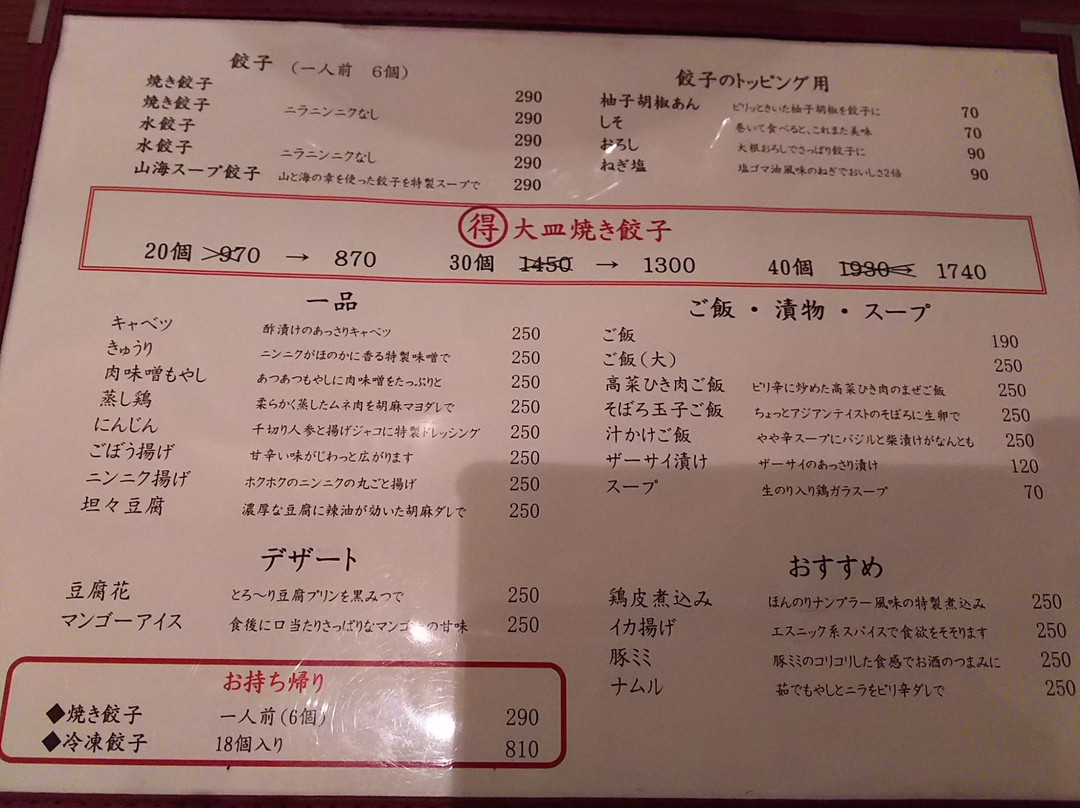 餃子 （一人前 6個）
焼き餃子 290
焼き餃子 ニラニンニクなし 290
水餃子 290
水餃子 ニラニンニクなし 290
山海スープ餃子 山と海の幸を使った餃子を特製スープで 290
餃子のトッピング用
柚子胡椒あん ピリッときいた柚子胡椒を餃子に 70
しそ 巻いて食べると、これまた美味 70
おろし 大根おろしでさっぱり餃子に 90
ねぎ塩 塩ゴマ油風味のねぎでおいしさ2倍 90
得 大皿焼き餃子
20個 970 → 870 30個 1450 → 1300 40個 1930 1740
一品
キャベツ 酢漬けのあっさりキャベツ 250
きゅうり ニンニクがほのかに香る特製味噌で 250
肉味噌もやし あつあつもやしに肉味噌をたっぷりと 250
蒸し鶏 柔らかく蒸したムネ肉を胡麻マヨダレで 250
にんじん 千切り人参と揚げジャコに特製ドレッシング 250
ごぼう揚げ 甘辛い味がじわっと広がります 250
ニンニク揚げ ホクホクのニンニクの丸ごと揚げ 250
坦々豆腐 濃厚な豆腐に辣油が効いた胡麻ダレで 250
ご飯・漬物・スープ
ご飯 190
ご飯（大） 250
高菜ひき肉ご飯 ピリ辛に炒めた高菜ひき肉のまぜご飯 250
そぼろ玉子ご飯 ちょっとアジアンテイストのそぼろに生卵で 250
汁かけご飯 やや辛スープにバジルと柴漬けがなんとも 250
ザーサイ漬け ザーサイのあっさり漬け 120
スープ 生のり入り鶏ガラスープ 70
デザート
豆腐花 とろ〜り豆腐プリンを黒みつで 250
マンゴーアイス 食後に口当たりさっぱりなマンゴーの甘味 250
おすすめ
鶏皮煮込み ほんのりナンプラー風味の特製煮込み 250
イカ揚げ エスニック系スパイスで食欲をそそります 250
豚ミミ 豚ミミのコリコリした食感でお酒のつまみに 250
ナムル 茹でもやしとニラをピリ辛ダレで 250
お持ち帰り
◆焼き餃子 一人前（6個） 290
◆冷凍餃子 18個入り 810